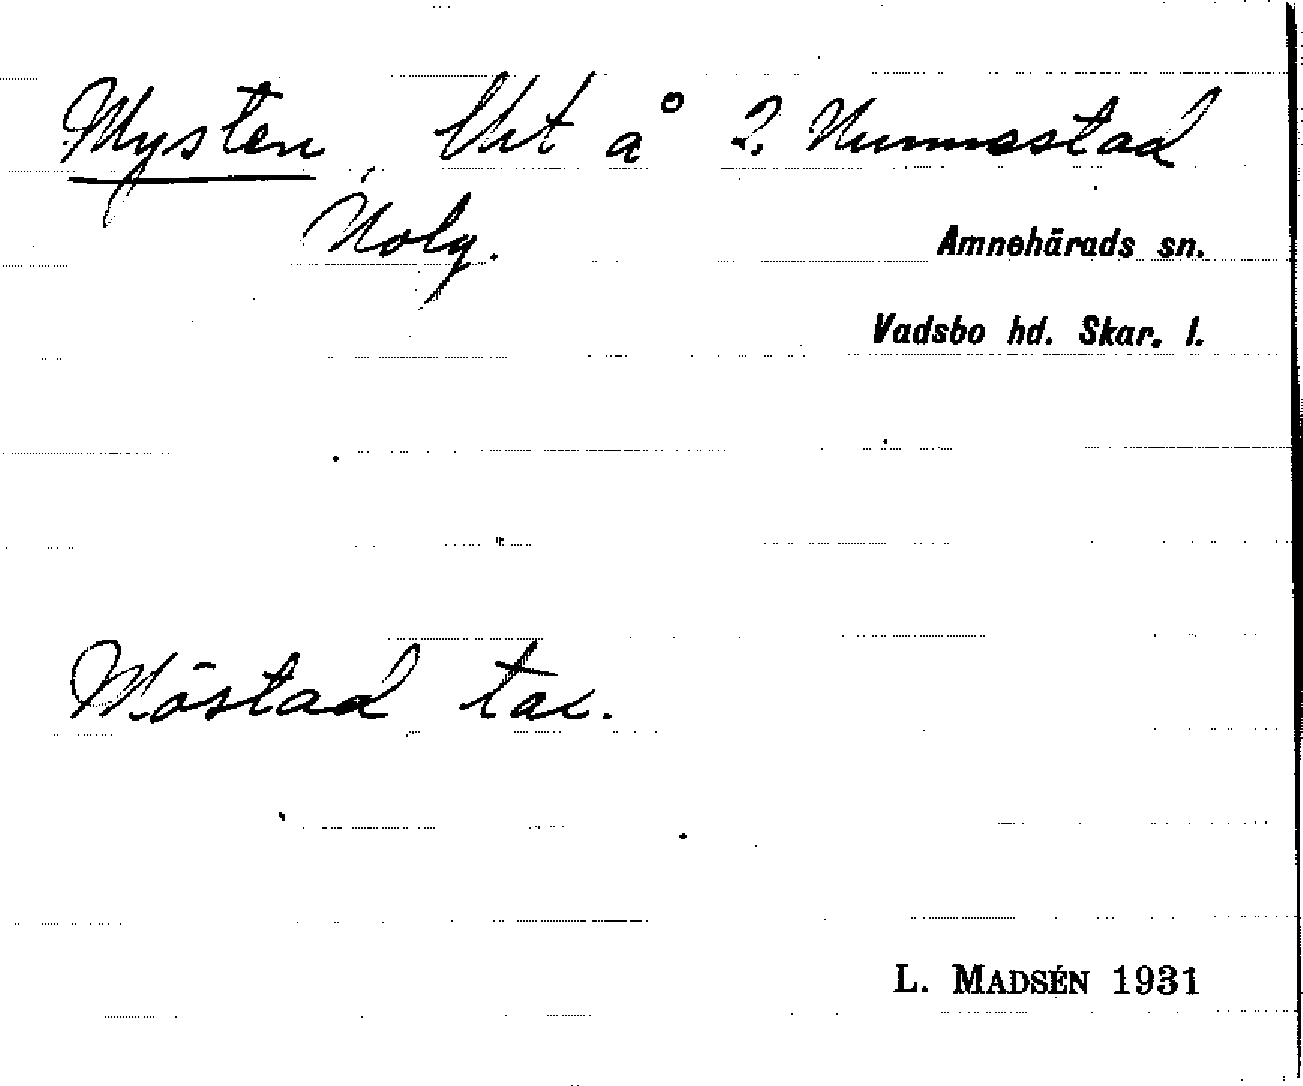 Mysten, Urt å 2. Nunnestad
Nolg.
Amnehärads sn.
Vadsbo hd. Skar. l.
Möstad tax.
L. MADSÉN 1931